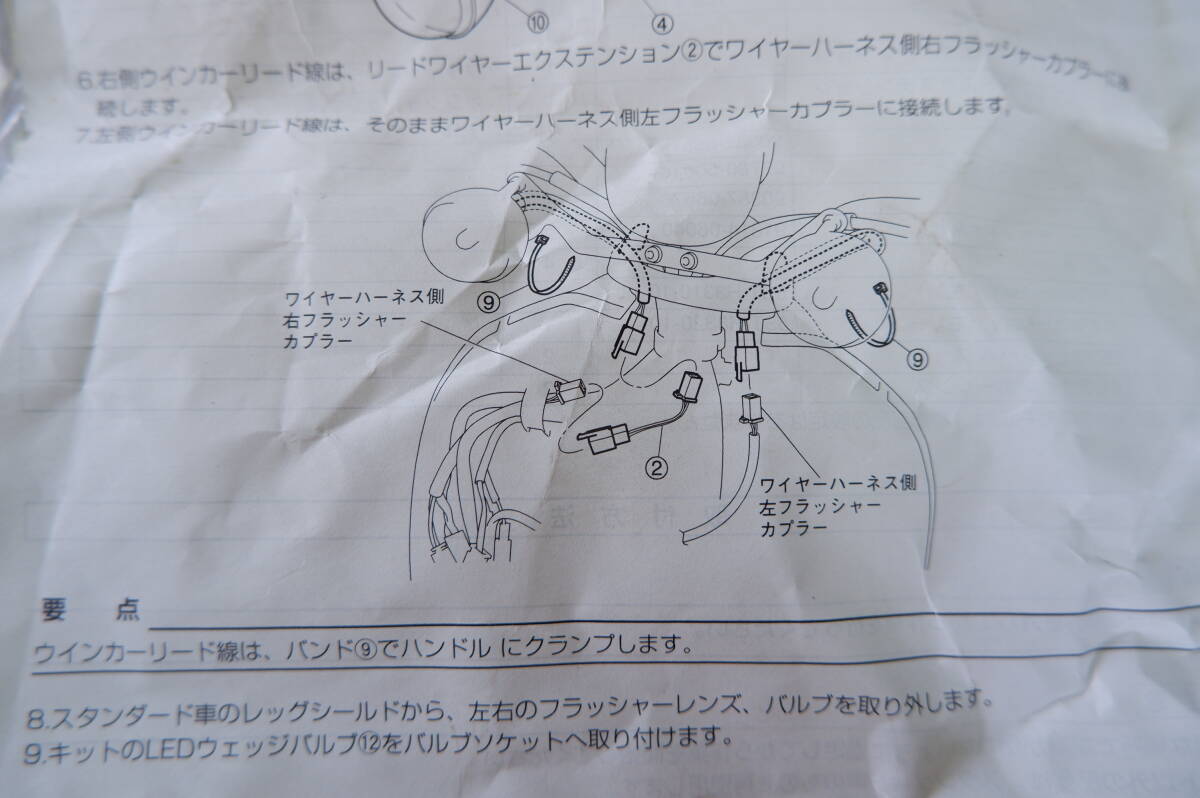 ⑩
④
6.右側ウインカーリード線は、リードワイヤーエクステンション②でワイヤーハーネス側右フラッシャーカプラーに接
続します。
7.左側ウインカーリード線は、そのままワイヤーハーネス側左フラッシャーカプラーに接続します。
ワイヤーハーネス側
右フラッシャー
カプラー
⑨
⑨
②
ワイヤーハーネス側
左フラッシャー
カプラー
要 点
ウインカーリード線は、バンド⑨でハンドル にクランプします。
8.スタンダード車のレッグシールドから、左右のフラッシャーレンズ、バルブを取り外します。
9.キットのLEDウェッジバルブ⑫をバルブソケットへ取り付けます。